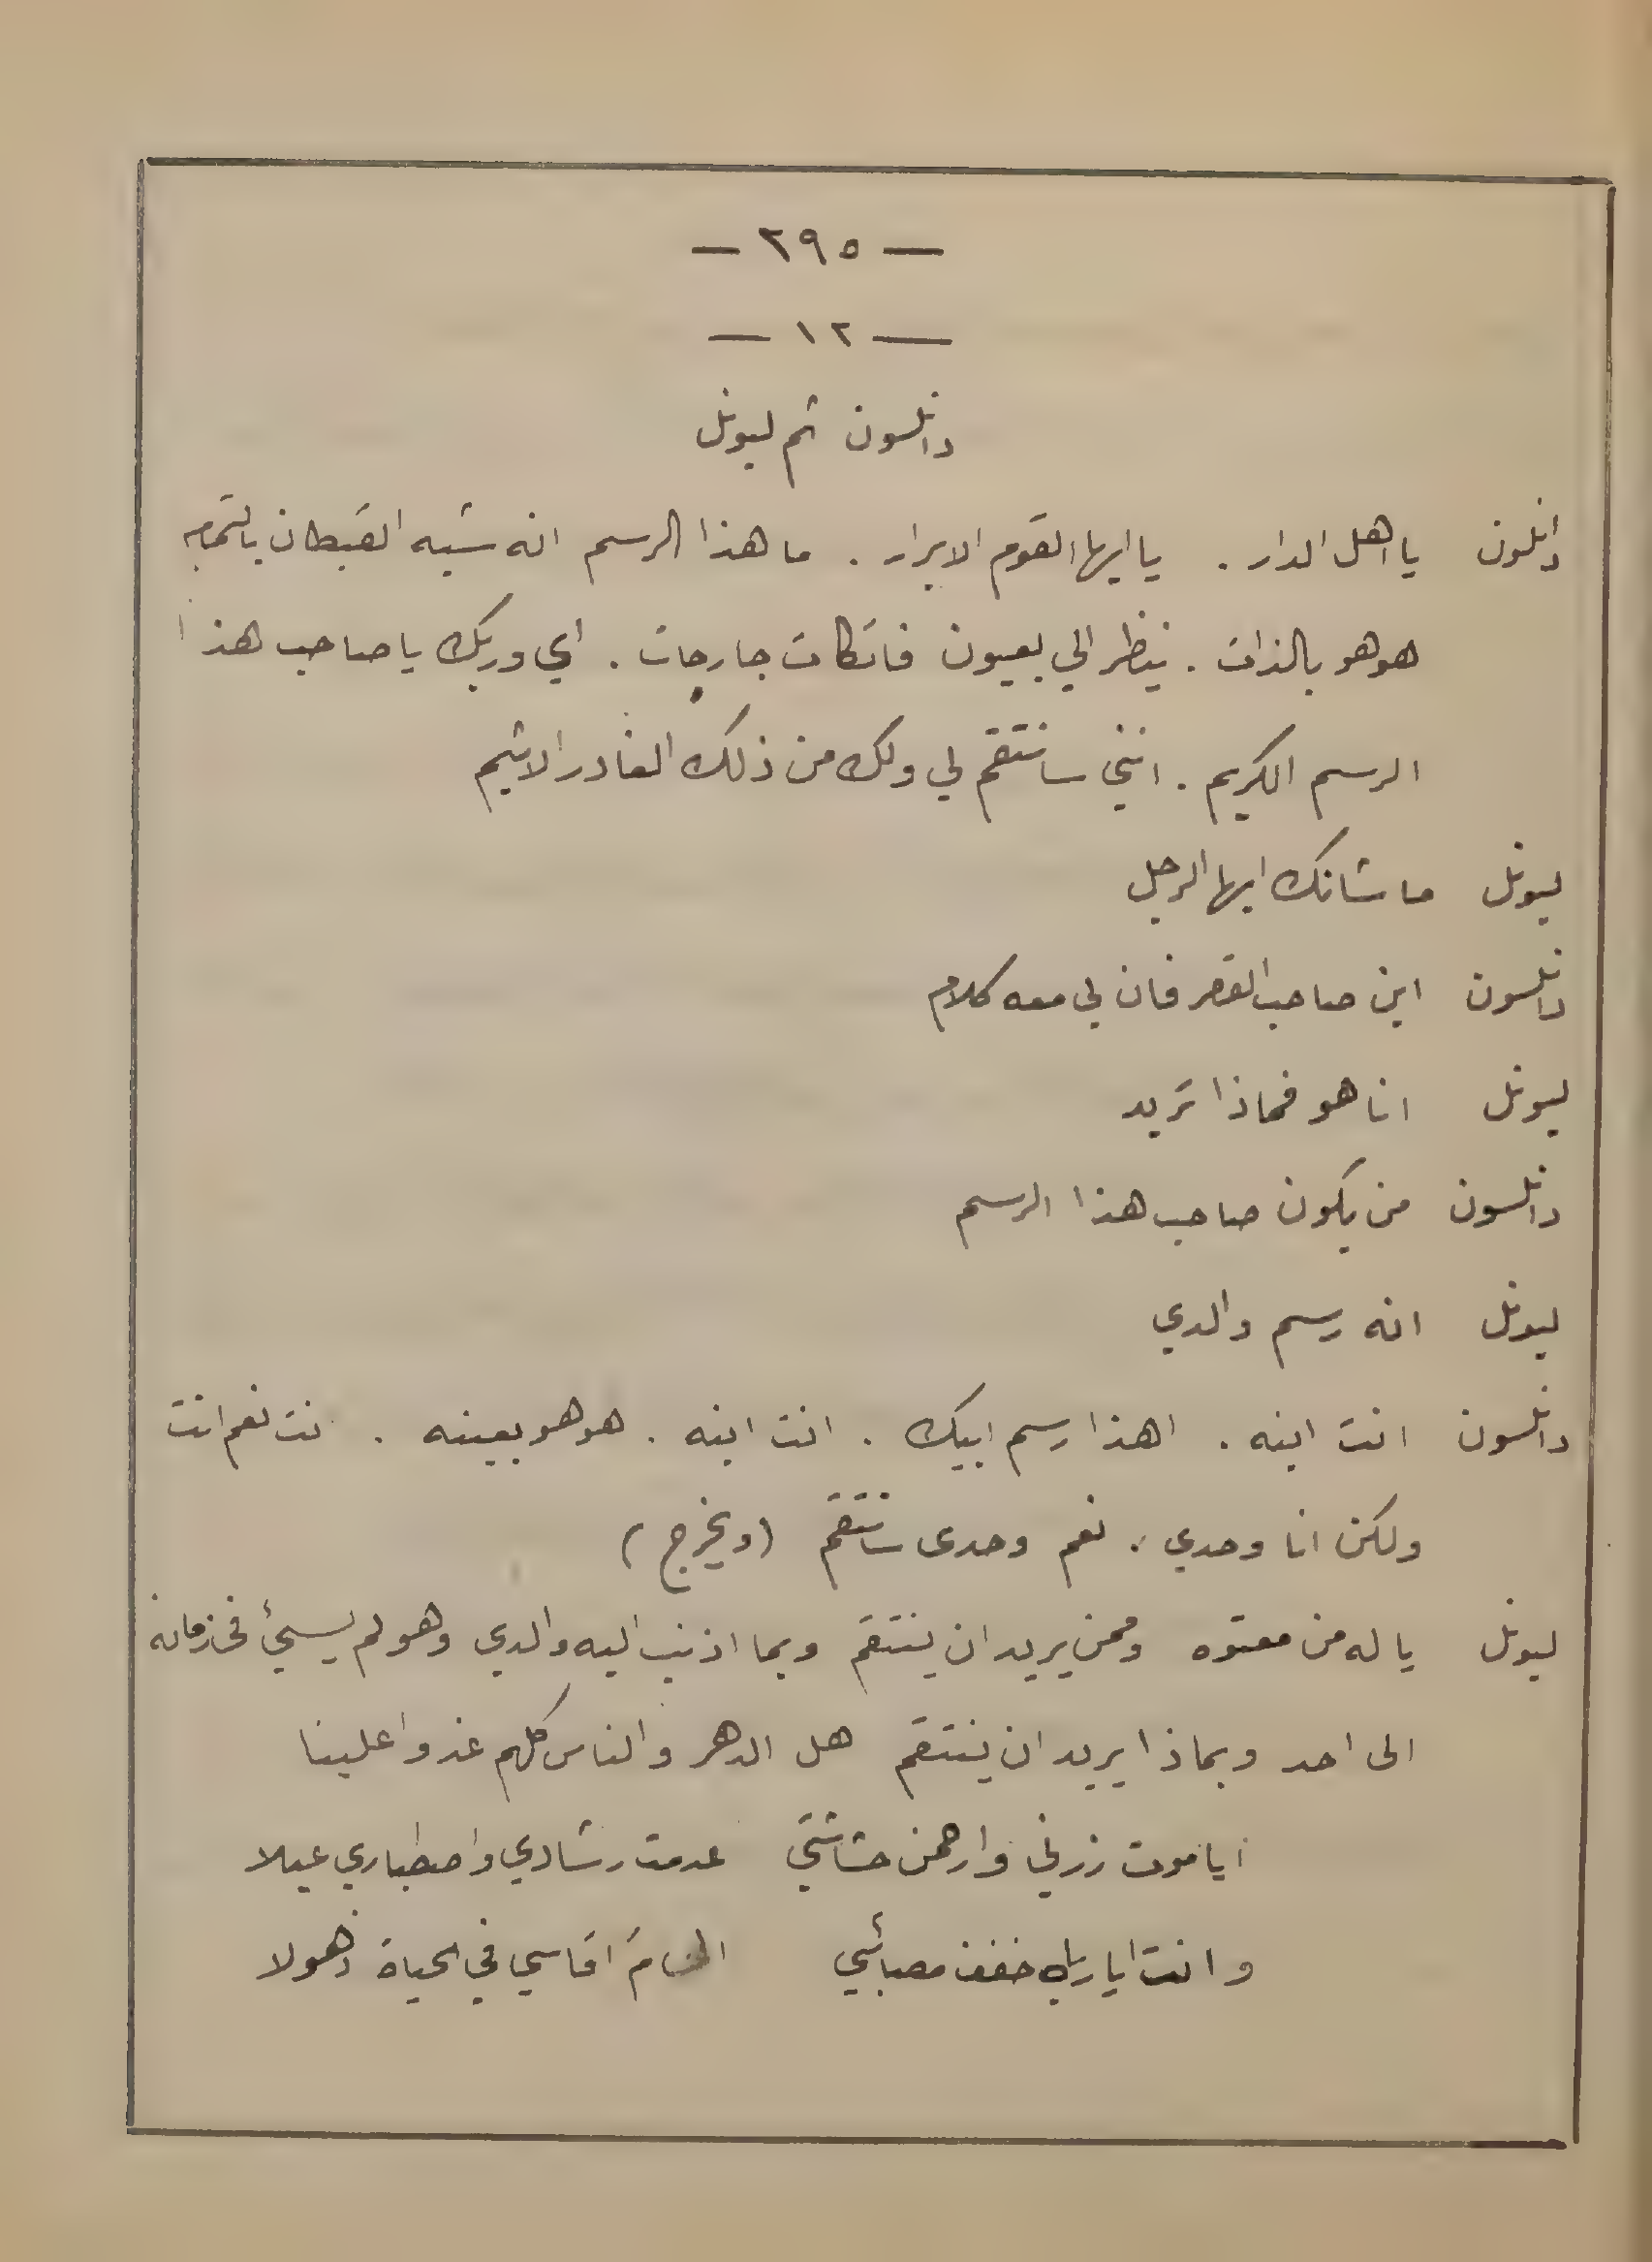 — ٢٩٥ —
— ١٢ —
دانلسون ثم ليونل
دانلسون يا اهل الدار . يا ايها القوم الابرار . ما هذا الرسم انه شبه القبطان بالتمام
هو هو بالذات . ينظر الي بعيون فاتكات جارحات . اي وربك يا صاحب هذا
الرسم الكريم . انني سانتقم لي ولك من ذلك الغادر الاثيم
ليونل ما شانك ايها الرجل
دانلسون اين صاحب القصر فان لي معه كلام
ليونل انا هو فماذا تريد
دانلسون من يكون صاحب هذا الرسم
ليونل انه رسم والدي
دانلسون انت ابنه . اهذا رسم ابيك . انت ابنه . هو هو بعينه . انت نعم انت
ولكن انا وحدي . نعم وحدى سانتقم (ويخرج)
ليونل يا له من معتوه وممن يريد ان ينتقم وبما اذنب اليه والدي وهو لم يسيئ فى زمانه
الى احد وبماذا يريد ان ينتقم هل الدهر والناس كلهم غدوا علينا
ايا موت زرني وارحمن حشاشتي عدمت رشادي واصطباري عيلا
وانت ايا رباه خفف مصبائبي اقاسي في الحياة ذهولا